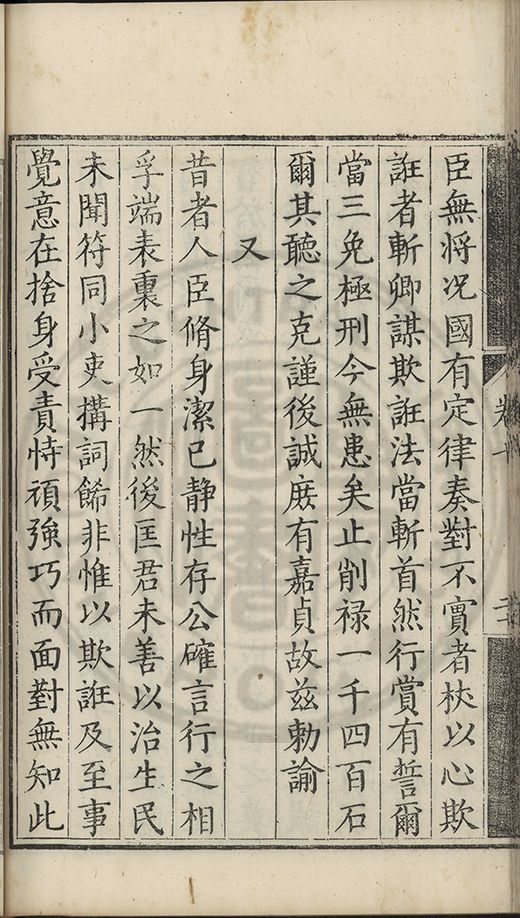 臣無将况國有定律奏對不實者杖以心欺
誑者斬卿謀欺誑法當斬首然行賞有誓爾
當三免極刑今無患矣止削禄一千四百石
爾其聽之克謹後誠庻有嘉貞故茲勅諭
又
昔者人臣脩身潔已静性存公確言行之相
孚端表裏之如一然後匡君未善以治生民
未聞符同小吏搆詞餙非惟以欺誑及至事
覺意在捨身受責恃頑強巧而面對無知此
卷十